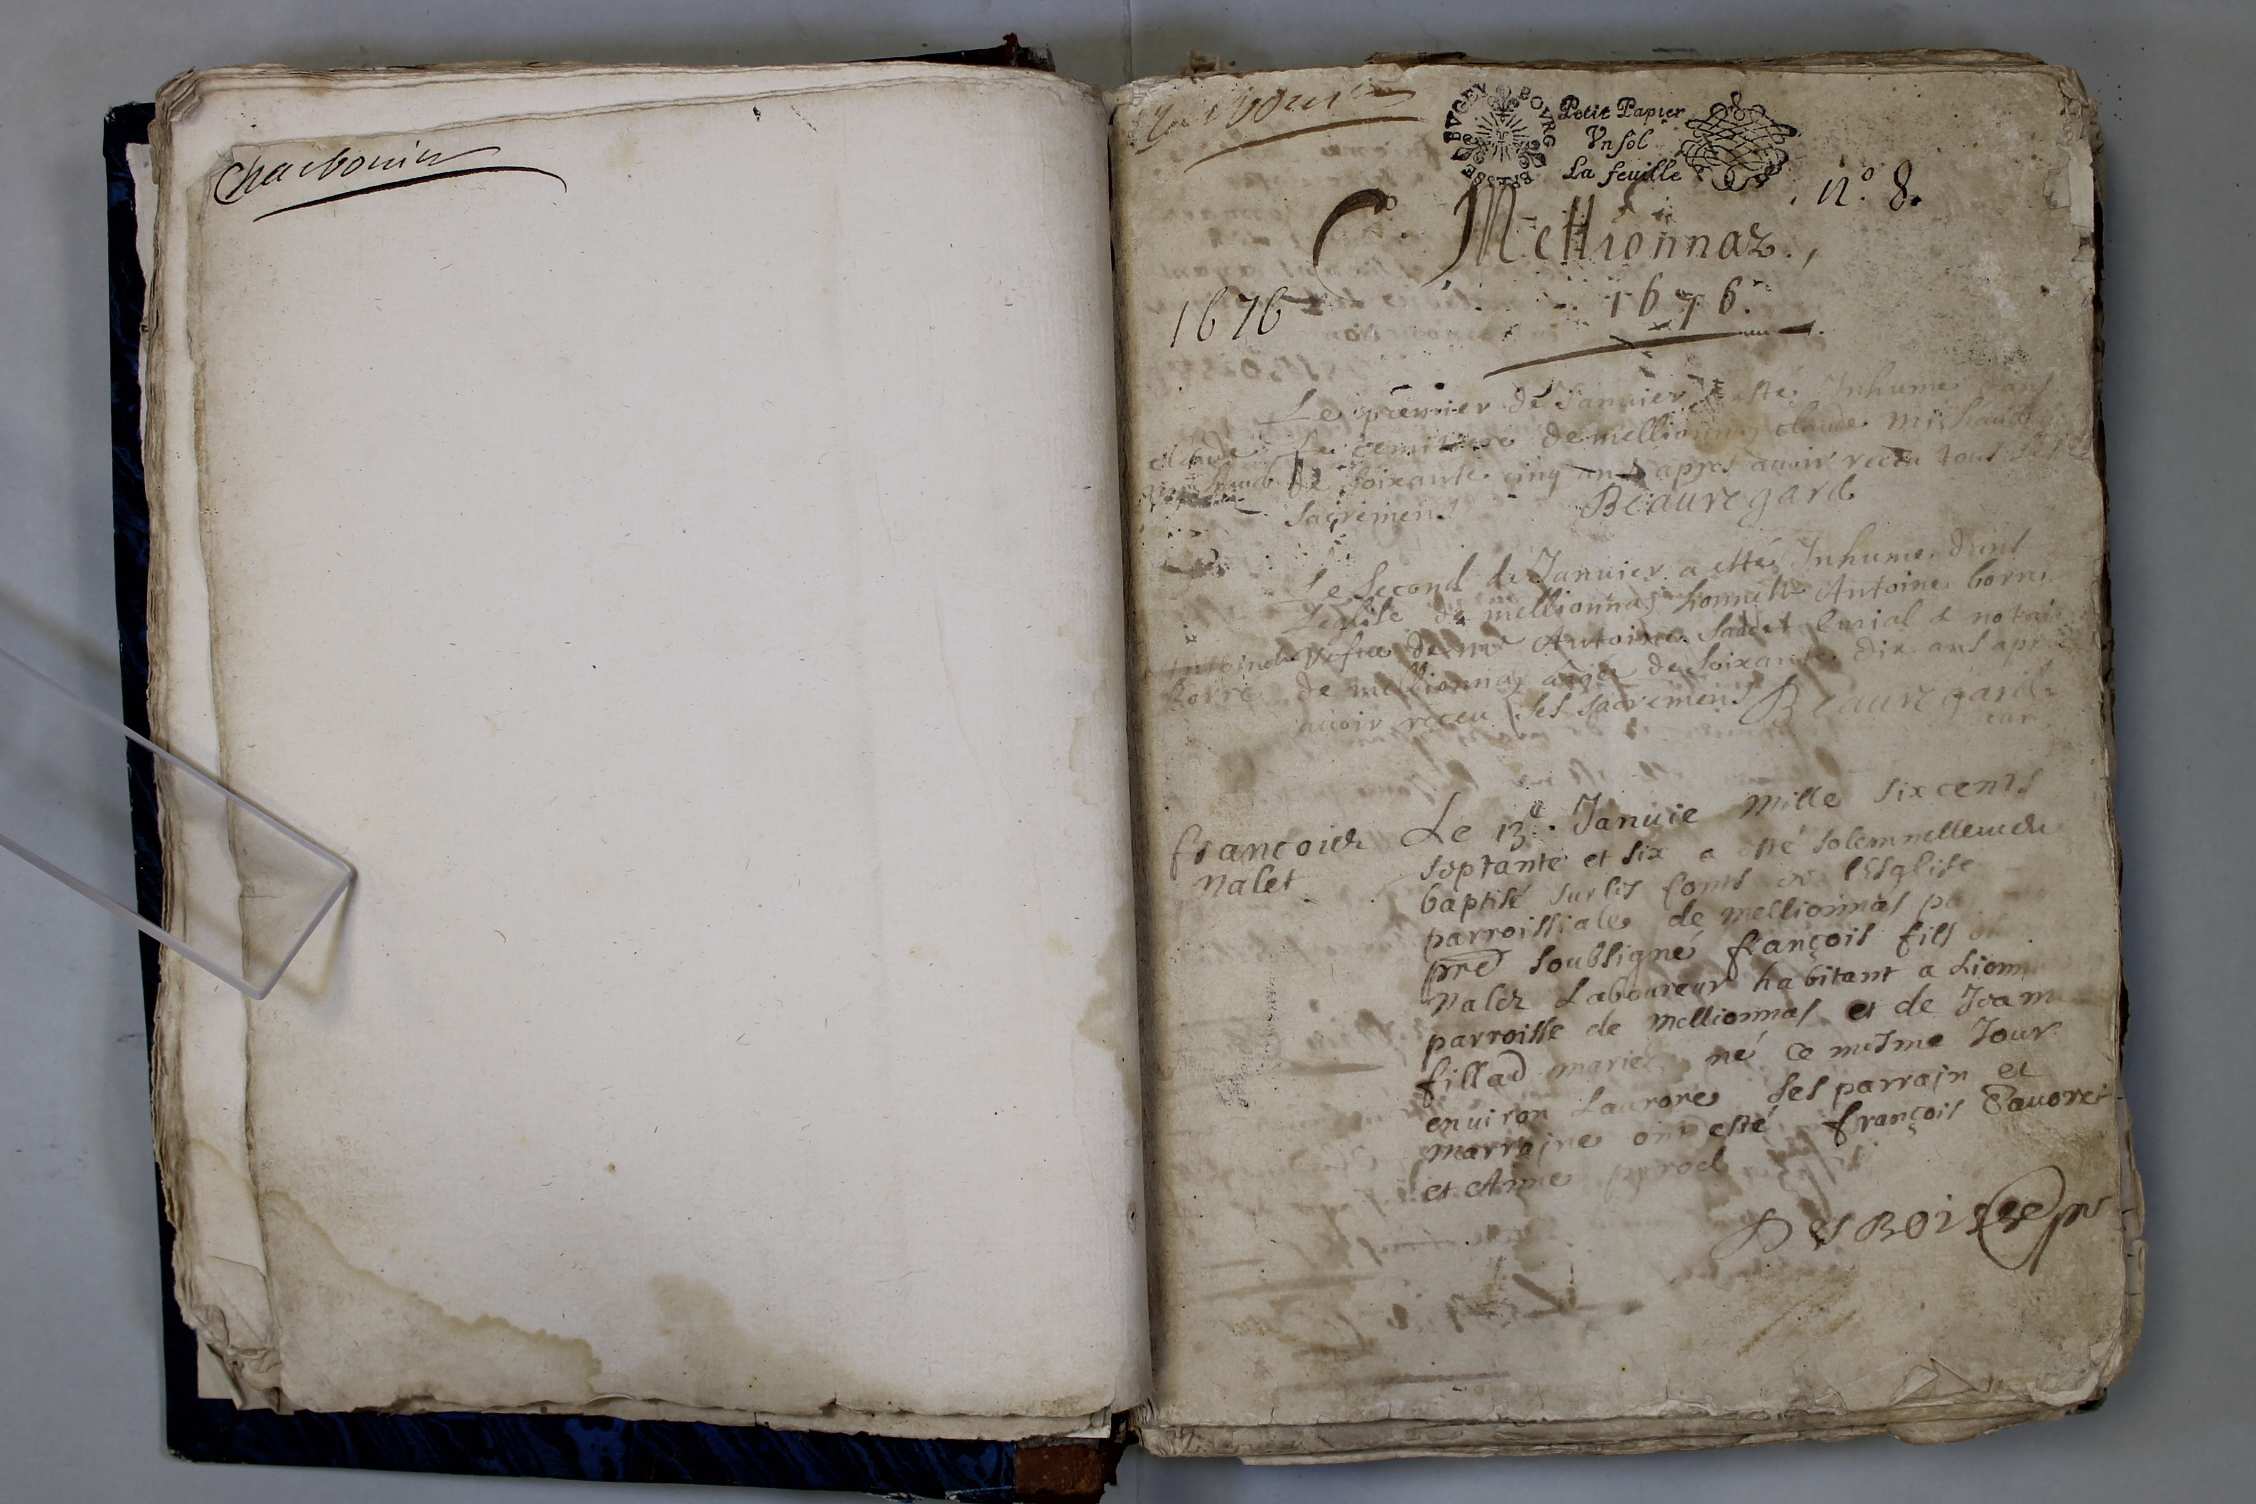 Charbonier
BRESSE BVGEY BOVRG
Petit Papier
Vn sol
La feuille
n.º 8.
Mellionnaz.
1676
1676.
Le premier de Januier a esté Inhumé dans
le cemitiere de mellionnaz claude Michaud
de soixante cinq ans apres auoir receu tous ses
sacremens Beauregard
claude
Michaud
Le second de Januier a esté Inhumé dans
l'eglise de mellionnas honneste Antoine borre
vefue de mre Antoine Curial & notai
de mellionnas agée de soixante dix ans apres
auoir receu ses sacremens Beauregard
Antoine
Borre
francois
Nalet
Le 13e. Januie Mille six cents
septante et six a esté solemnellement
baptisé sur les fonts de l'Esglise
parroissiale de mellionnas pa
pre soubsigné françois fils
Nalet Laboureur habitant a Lionn
parroisse de Mellionnas et de Jeann
fillad mariés né ce mesme Jour
enuiron Laurore ses parrain et
marraine ont esté françois Dauoret
et Anne
DESBOIS pre